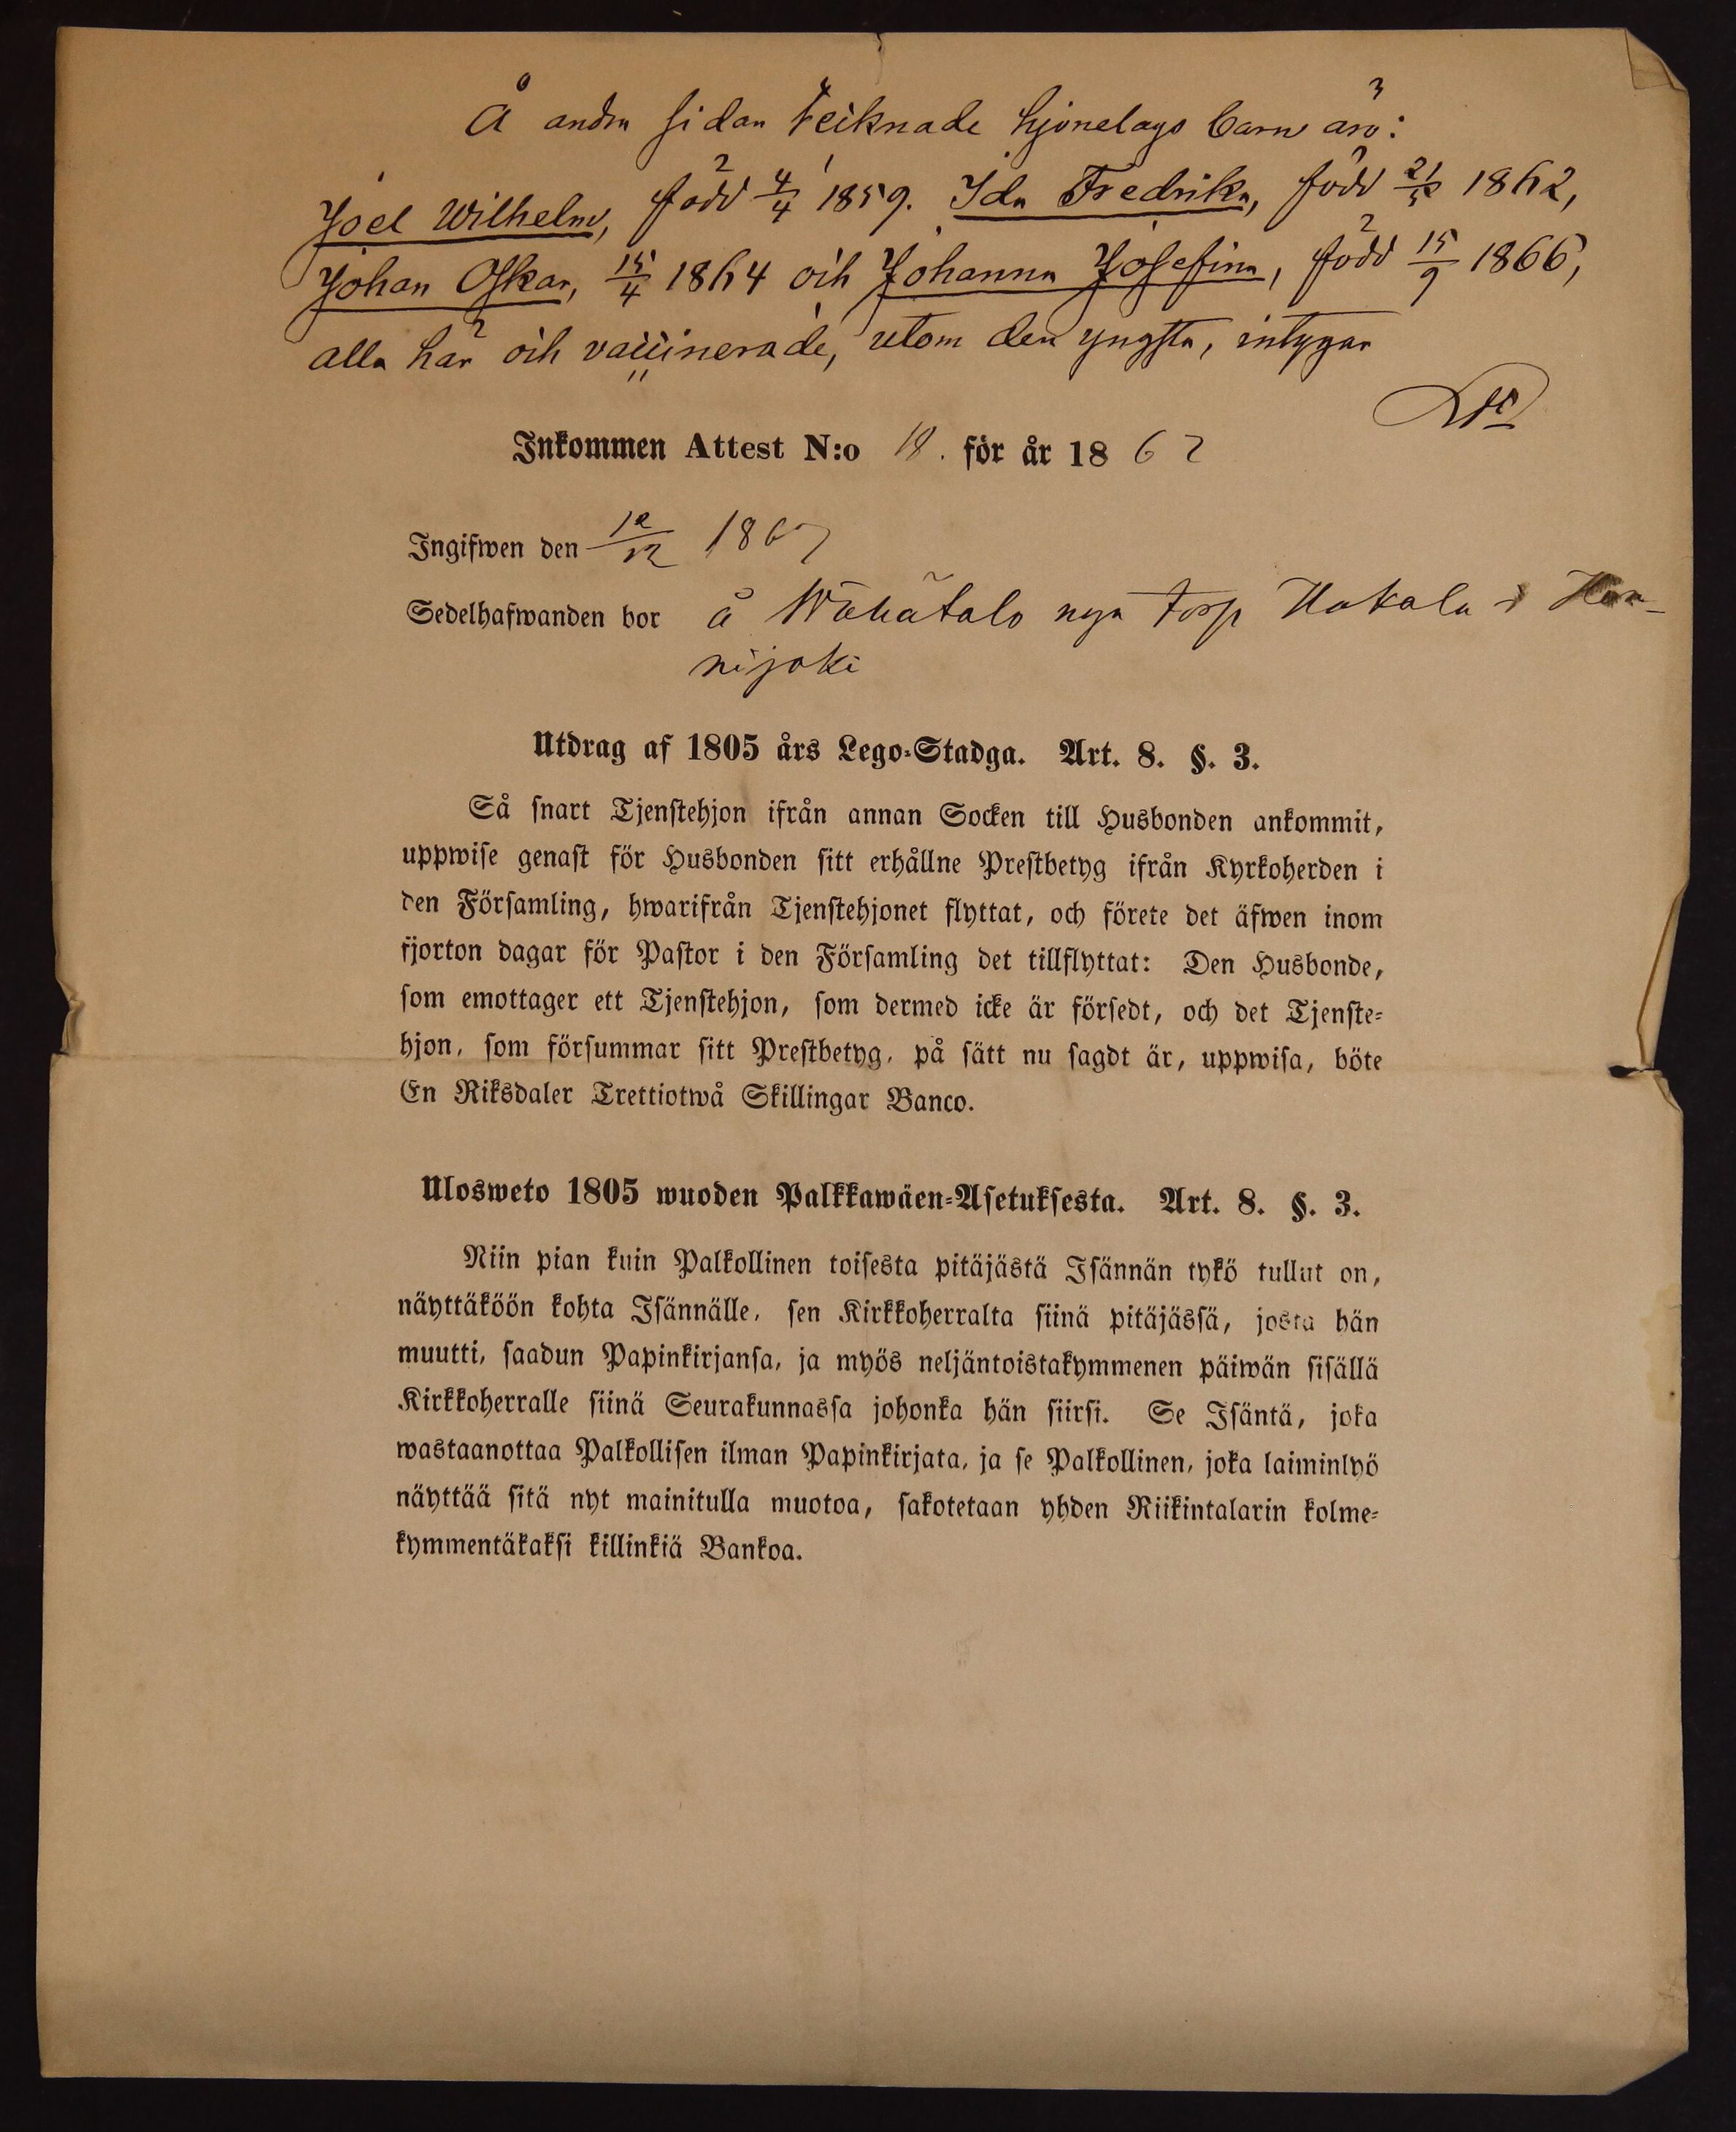 Å andra sidan teiknade hjonelags barn äro:
Joel Wilhelm, född 4/4 1859. Ida Fredrika, född 1862,
Johan Oskar, 15/4 1864 och Johanna Josefina, född 15/9 1866,
alla här och vaccinerade, utom den yngsta, intygar
Inkommen Attest N:o 18. för år 1867
Ingifwen den 12/12 1867
Sedelhafwanden bor å Wähätalo nya torp Hakala i Kan-
nijoki
Utdrag af 1805 års Lego-Stadga. Art. 8. §. 3.
Så snart Tjenstehjon ifrån annan Socken till Husbonden ankommit,
uppwise genast för Husbonden sitt erhållne Prestbetyg ifrån Kyrkoherden i
den Församling, hwarifrån Tjenstehjonet flyttat, och förete det äfwen inom
fjorton dagar för Pastor i den Församling det tillflyttat: Den Husbonde,
som emottager ett Tjenstehjon, som dermed icke är försedt, och det Tjenste-
hjon, som försummar sitt Prestbetyg, på sätt nu sagdt är, uppwisa, böte
En Riksdaler Trettiotwå Skillingar Banco.
Ulosweto 1805 wuoden Palkkawäen-Asetuksesta. Art. 8. §. 3.
Niin pian kuin Palkollinen toisesta pitäjästä Isännän tykö tullut on,
näyttäköön kohta Isännälle, sen Kirkkoherralta siinä pitäjässä, josta hän
muutti, saadun Papinkirjansa, ja myös neljäntoistakymmenen päiwän sisällä
Kirkkoherralle siinä Seurakunnassa johonka hän siirsi. Se Isäntä, joka
wastaanottaa Palkollisen ilman Papinkirjata, ja se Palkollinen, joka laiminlyö
näyttää sitä nyt mainitulla muotoa, sakotetaan yhden Riikintalarin kolme-
kymmentäkaksi killinkiä Bankoa.